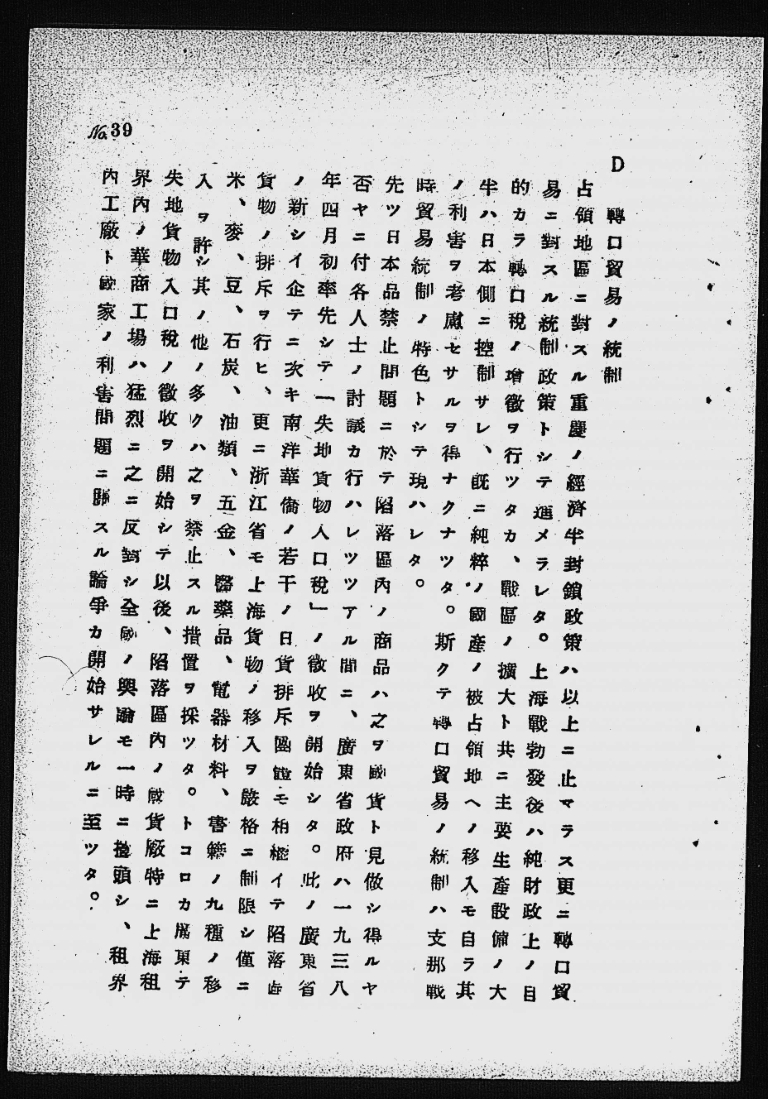 No. 39
D 轉口貿易ノ統制
占領地區ニ對スル重慶ノ經濟半封鎖政策ハ以上ニ止マラス更ニ轉口貿
易ニ對スル統制政策トシテ進メラレタ。上海戰勃發後ハ純財政上ノ目
的カラ轉口稅ノ增徵ヲ行ツタカ、戰區ノ擴大ト共ニ主要生產設備ノ大
半ハ日本側ニ控制サレ、既ニ純粹ノ國產ノ被占領地ヘノ移入モ自ラ其
ノ利害ヲ考慮セサルヲ得ナクナツタ。斯クテ轉口貿易ノ統制ハ支那戰
時貿易統制ノ特色トシテ現ハレタ。
先ツ日本品禁止問題ニ於テ陷落區內ノ商品ハ之ヲ國貨ト見做シ得ルヤ
否ヤニ付各人士ノ討議カ行ハレツツアル間ニ、廣東省政府ハ一九三八
年四月初率先シテ「失地貨物入口稅」ノ徵收ヲ開始シタ。此ノ廣東省
ノ新シイ企テニ次キ南洋華僑ノ若干ノ日貨排斥團體モ相繼イテ陷落區
貨物ノ排斥ヲ行ヒ、更ニ浙江省モ上海貨物ノ移入ヲ嚴格ニ制限シ僅ニ
米、麥、豆、石炭、油類、五金、醫藥品、電器材料、書籍ノ九種ノ移
入ヲ許シ其ノ他ノ多クハ之ヲ禁止スル措置ヲ採ツタ。トコロカ廣東テ
失地貨物入口稅ノ徵收ヲ開始シテ以後、陷落區內ノ國貨廠特ニ上海租
界內ノ華商工場ハ猛烈ニ之ニ反對シ全國ノ輿論モ一時ニ擡頭シ、租界
內工廠ト國家ノ利害問題ニ關スル論爭カ開始サレルニ至ツタ。